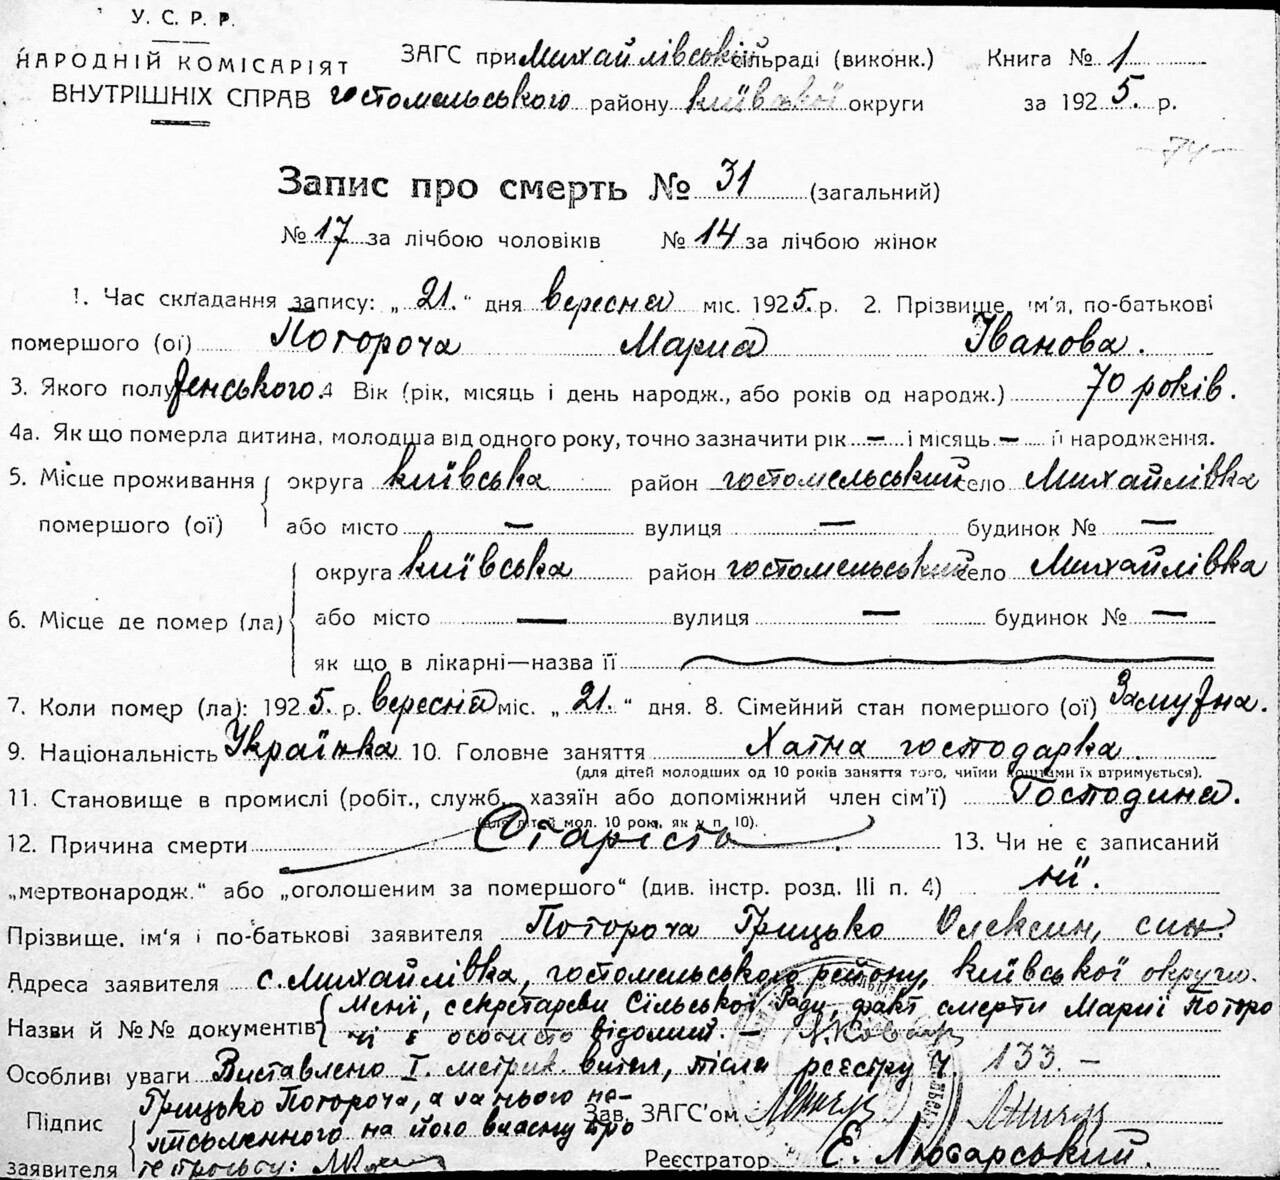 У. С. Р. Р.
НАРОДНІЙ КОМІСАРІЯТ
ВНУТРІШНІХ СПРАВ
ЗАГС при Михайлівській сільраді (виконк.) Книга № 1
гостомельського району київської округи за 1925. р.
- 74 -
Запис про смерть № 31 (загальний)
№ 17 за лічбою чоловіків № 14 за лічбою жінок
1. Час складання запису: „21.“ дня вересня міс. 1925. р. 2. Прізвище, ім'я, по-батькові
помершого (ої) Погороча Мария Іванова.
3. Якого полу женського. 4 Вік (рік, місяць і день народж., або років од народж.) 70 років.
4а. Як що померла дитина, молодша від одного року, точно зазначити рік — і місяць — її народження.
5. Місце проживання округа київська район гостомельський село Михайлівка
помершого (ої) або місто — вулиця — будинок № —
округа київська район гостомельський село Михайлівка
6. Місце де помер (ла) або місто — вулиця — будинок № —
як що в лікарні—назва її
7. Коли помер (ла): 1925. р. вересня міс. „21.“ дня. 8. Сімейний стан помершого (ої) Замужна.
9. Національність Українка 10. Головне заняття Хатня господарка.
(для дітей молодших од 10 років заняття того, чиїми коштами їх втримується).
11. Становище в промислі (робіт., служб., хазяїн або допоміжний член сім'ї) Господиня.
(для дітей мол. 10 рок, як у п. 10).
12. Причина смерти Старість. 13. Чи не є записаний
„мертвонародж.“ або „оголошеним за помершого“ (див. інстр. розд. III п. 4) ні.
Прізвище, ім'я і по-батькові заявителя Погороча Грицько Олексин, син.
Адреса заявителя с. Михайлівка, гостомельського району, київської округи.
Назви й №№ документів Мені, секретареви Сільської Ради, факт смерти Марії Погоро
чі є особисто відомий. —
Особливі уваги Виставлено I. метрик. витяг, після реєстру ч 133. —
Підпис Грицько Погороча, а за нього не-
письменного на його власну про Зав. ЗАГС'ом
заявителя Реєстратор Е. Лютарський.